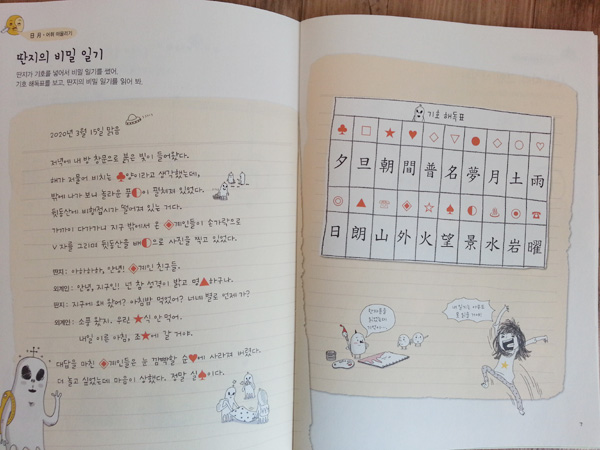 日 月 • 어휘 떠올리기
딴지의 비밀 일기
딴지가 기호를 넣어서 비밀 일기를 썼어.
기호 해독표를 보고, 딴지의 비밀 일기를 읽어 봐.
2020년 3월 15일 맑음
저녁에 내 방 창문으로 붉은 빛이 들어왔다.
해가 저물어 비치는 ♣양이라고 생각했는데,
밖에 나가 보니 놀라운 풍◐이 펼쳐져 있었다.
뒷동산에 비행접시가 떨어져 있는 거다.
가까이 다가가니 지구 밖에서 온 ◈계인들이 손가락으로
V 자를 그리며 뒷동산을 배◐으로 사진을 찍고 있었다.
딴지: 아하하하, 안녕! ◈계인 친구들.
외계인: 안녕, 지구인! 넌 참 성격이 밝고 명▲하구나.
딴지: 지구에 왜 왔어? 아침밥 먹었어? 너네 별로 언제 가?
외계인: 소풍 왔지. 우린 ★식 안 먹어.
내일 이른 아침, 조★에 갈 거야.
대답을 마친 ◈계인들은 눈 깜빡할 순♥에 사라져 버렸다.
더 놀고 싶었는데 마음이 상했다. 정말 실♠이다.
기호 해독표
♣ □ ★ ♥ ◇ ▽ ● ◇ ○ ♡
夕 旦 朝 間 普 名 夢 月 土 雨
◎ ▲ ☏ ◈ ☆ ♠ ◐ ♨ ◉ ☎
日 朗 山 外 火 望 景 水 岩 曜
7